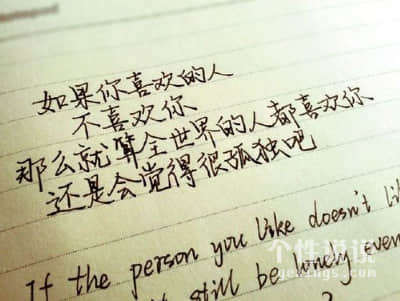 如果你喜欢的人
不喜欢你
那么就算全世界的人都喜欢你
还是会觉得很孤独吧
If the person you like doesn't li
still be lonely even
个性说说
gexings.com